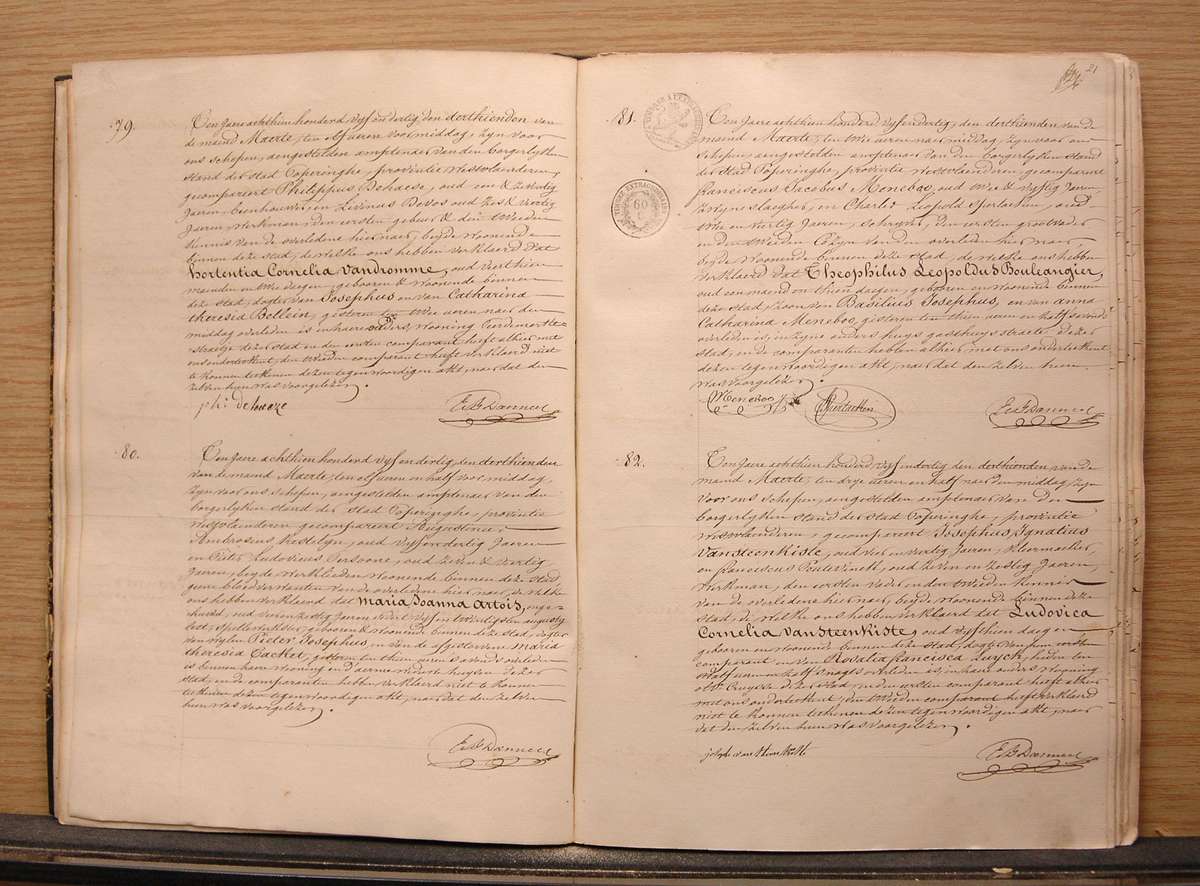 79.
Ten Jaere achthien honderd vyf en dertig den derthienden van
de maend Maerte, ten elf ueren voormiddag, zyn voor
ons schepen, aengestelden amptenaer van den borgerlyken
stand der stad Poperinghe, provintie Westvlaenderen,
gecompareert Philippus Dehaese, oud een & zeventig
Jaeren, en Livinus Devos oud zes & veertig
Jaeren, werkman, den eersten gebuer & den tweeden
kennis van de overledene hier naer, beyde woonende
binnen deze stad, de welke ons hebben verklaerd dat
hortentia Cornelia Vandromme, oud vier thien
maenden en twee daegen, gebooren & woonende binnen
deze stad, dogter van Josephus en van Catharina
theresia Bellein, gisteren ten twee ueren naer den
middag overleden is in haere ouders wooning
straetje dezer stad en den eersten comparant heeft alhier met
ons onderteekent, den tweeden comparant heeft verklaerd niet
te konnen teekenen dezen tegenwoordigen akt, naer dat den
zelven hun was voorgelezen.
phi. dehaeze
80.
Ten Jaere achthien honderd vyf en dertig, den derthienden
van de maend Maerte, ten elf ueren en half voormiddag,
zyn voor ons schepen, aengestelden amptenaer van den
borgerlyken stand der stad Poperinghe, provintie
Westvlaenderen gecompareert Augustinus
Ambrosius Kestelyn, oud vyf en dertig Jaeren
en Pieter Ludovicus Persoone, oud zeven & veertig
Jaeren, beyde werklieden woonende binnen deze stad
geene bloedverwanten van de overledene hier naer, de welke
ons hebben verklaerd dat maria Joanna artois, onge-
houwd, oud
lest, spellewerkster, gebooren & woonende binnen deze stad, dogter
van wylen Pieter Josephus, en van de
theresia Cacket, gisteren ten thien ueren 's avonds overleden
is binnen haere wooning
stad, en de comparanten hebben verklaerd niet te konnen
teekenen dezen tegenwoordigen akt, naer dat den zelven
hun was voorgelezen.
21
81.
Ten Jaere achthien honderd vyf en dertig, den derthienden van de
maend Maerte, ten twee ueren naer middag, zyn voor ons
schepen, aengestelden amptenaer van den borgerlyken stand
der stad Poperinghe, provintie Westvlaenderen, gecompareert
franciscus Jacobus Meneboo, oud twee & vyftig Jaeren,
zwynslaegher, en Charles Leopold oud
twee en dertig Jaeren, schryver, den eersten grootvader
en den tweeden Cozyn van den overleden hier naer,
beyde woonende binnen deze stad, de welke ons hebben
verklaerd dat Theophilus Leopoldus Bouleangier,
oud een maend en thien daegen, gebooren en woonende binnen
deze stad, zoon van Basilius Josephus, en van anna
Catharina Meneboo, gisteren ten thien ueren en half 's avonds
overleden is, in zyne ouders huys gasthuysstraete dezer
stad, en de comparanten hebben alhier met ons onderteekent
dezen tegenwoordigen akt, naer dat den zelven hun
was voorgelezen.
Meneboo
60
82.
Ten Jaere achthien honderd vyf en dertig, den derthienden van de
maend Maerte, ten dry ueren en half naer den middag, zyn
voor ons schepen, aengestelden amptenaer van den
borgerlyken stand der stad Poperinghe, provintie
Westvlaenderen, gecompareert Josephus Ignatius
Vansteenkiste, oud vier en veertig Jaeren, kleermaeker,
en franciscus oud zeven en zestig Jaeren,
werkman, den eersten vader en den tweeden kennis
van de overledene hier naer, beyde woonende binnen deze
stad, de welke ons hebben verklaerd dat Ludovica
Cornelia Vansteenkiste, oud vyfthien daegen
gebooren en woonende binnen deze stad, dogter van hem eersten
comparant en van Rosalia francisca Luyck, heden ten
twaelf ueren en half 's nagts overleden is, in haere ouders wooning
dezer stad, en den eersten comparant heeft alhier
met ons onderteekent, den tweeden comparant heeft verklaerd
niet te konnen teekenen dezen tegenwoordigen akt, naer
dat den zelven hun was voorgelezen.